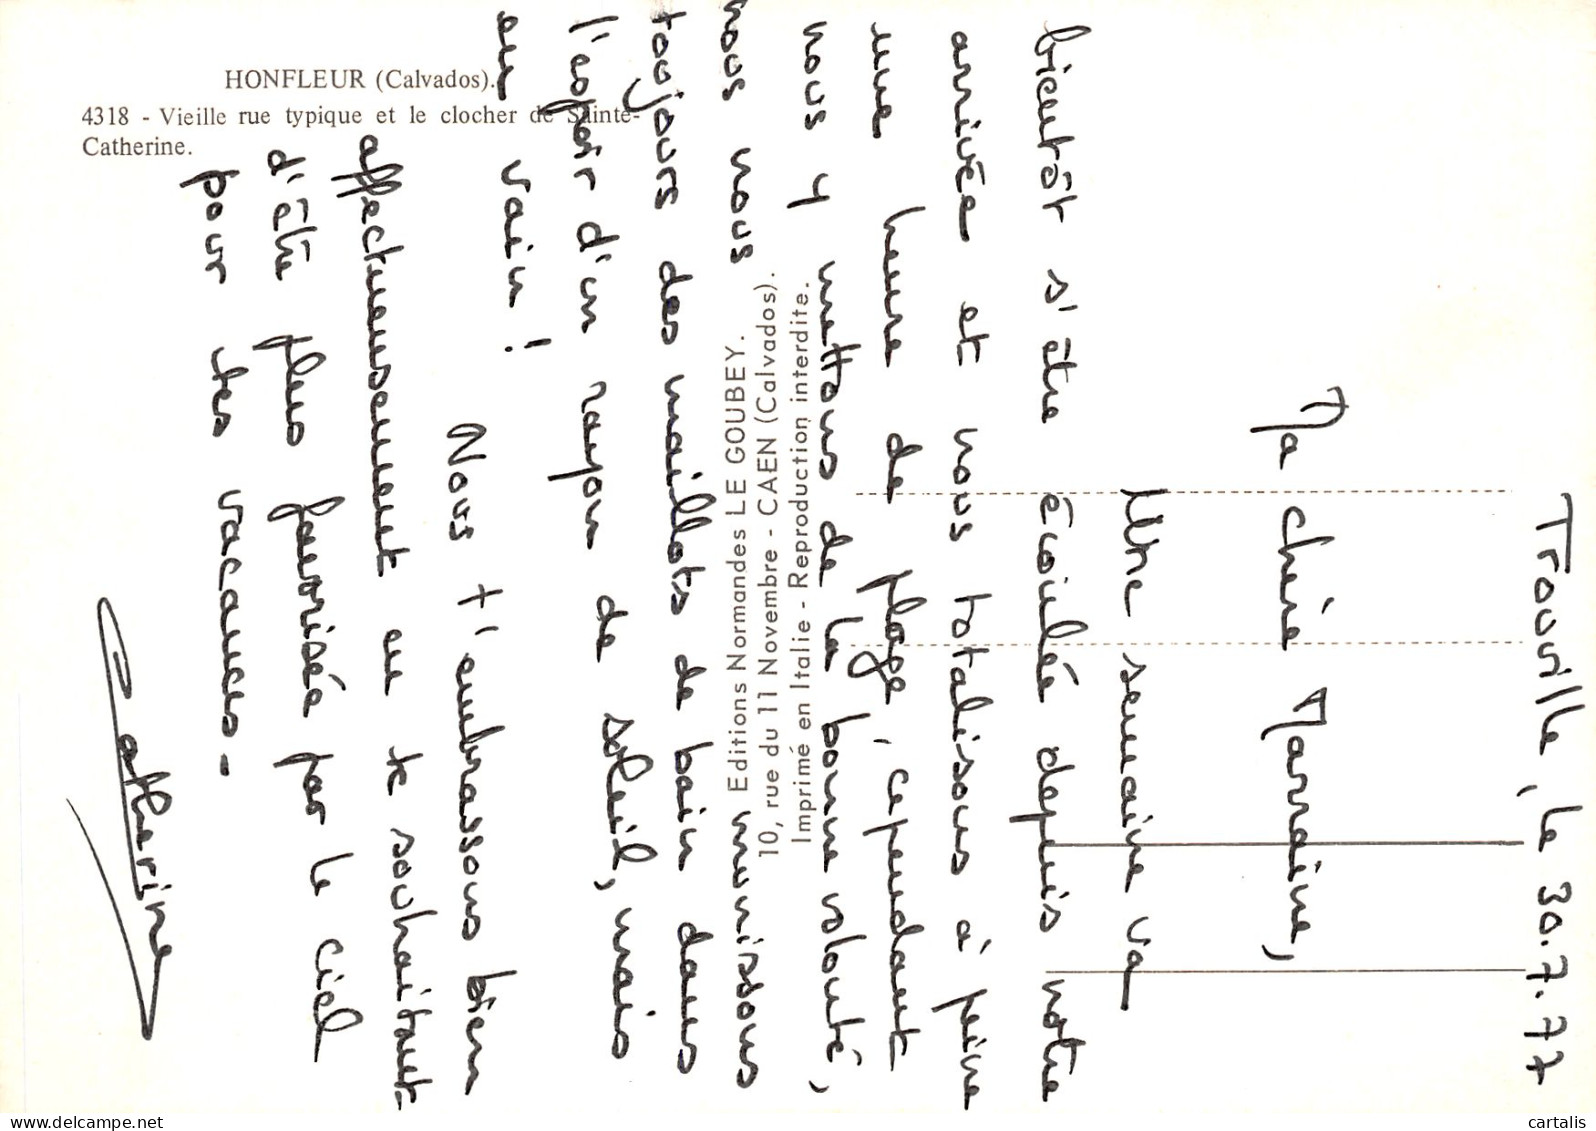 HONFLEUR (Calvados).
4318 - Vieille rue typique et le clocher de Sainte-
Catherine.
Editions Normandes LE GOUBEY.
10, rue du 11 Novembre - CAEN (Calvados).
Imprimé en Italie - Reproduction interdite.
Trouville, le 30.7.77
Ma chère Marraine,
Une semaine va
bientôt s'être écoulée depuis notre
arrivée et nous totalisons à peine
une heure de plage, cependant
nous y mettons de la bonne volonté,
nous nous munissons
toujours des maillots de bain dans
l'espoir d'un rayon de soleil, mais
en vain !
Nous t'embrassons bien
affectueusement en te souhaitant
d'être plus favorisée par le ciel
pour tes vacances.
Catherine
www.delcampe.net
cartalis